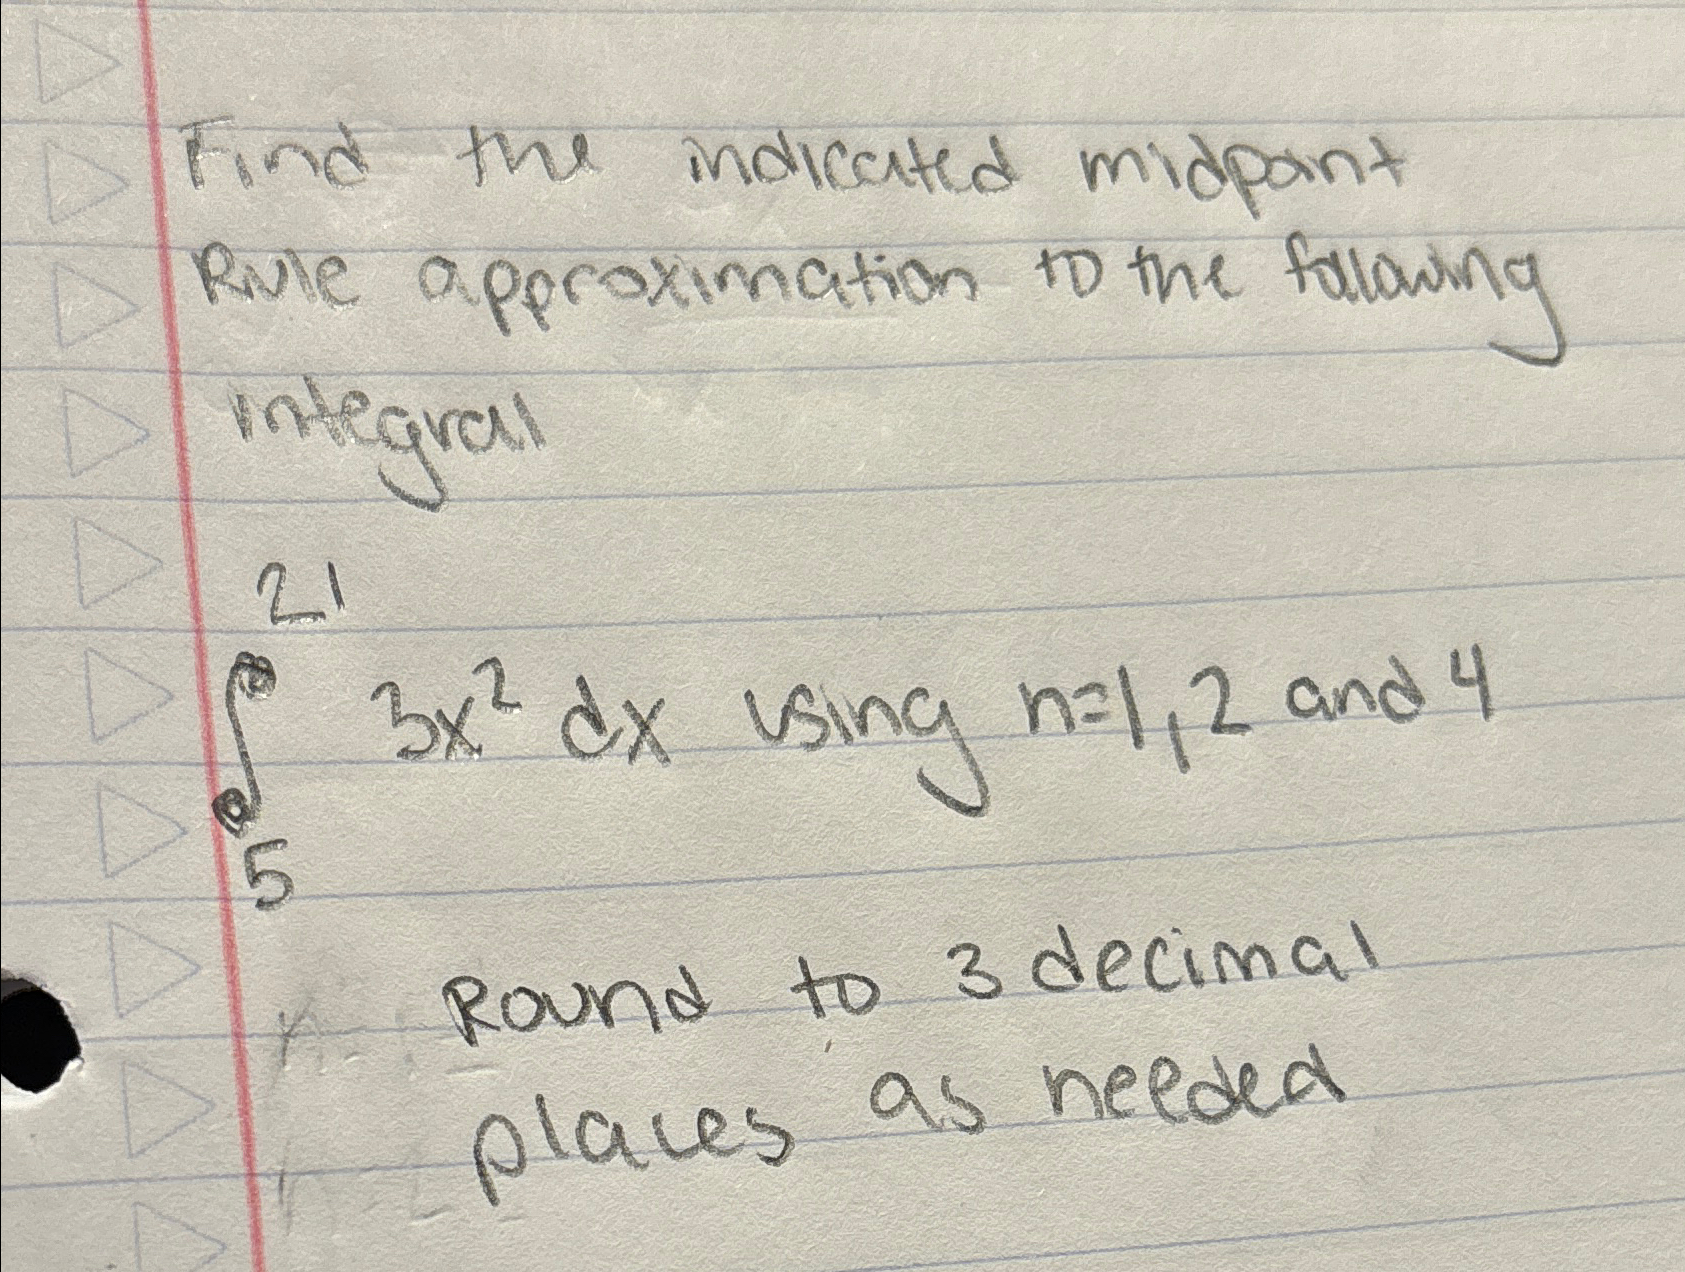 Find the indicated midpoint
Rule approximation to the following
integral
21
∫ 3x² dx using n=1, 2 and 4
5
Round to 3 decimal
places as needed